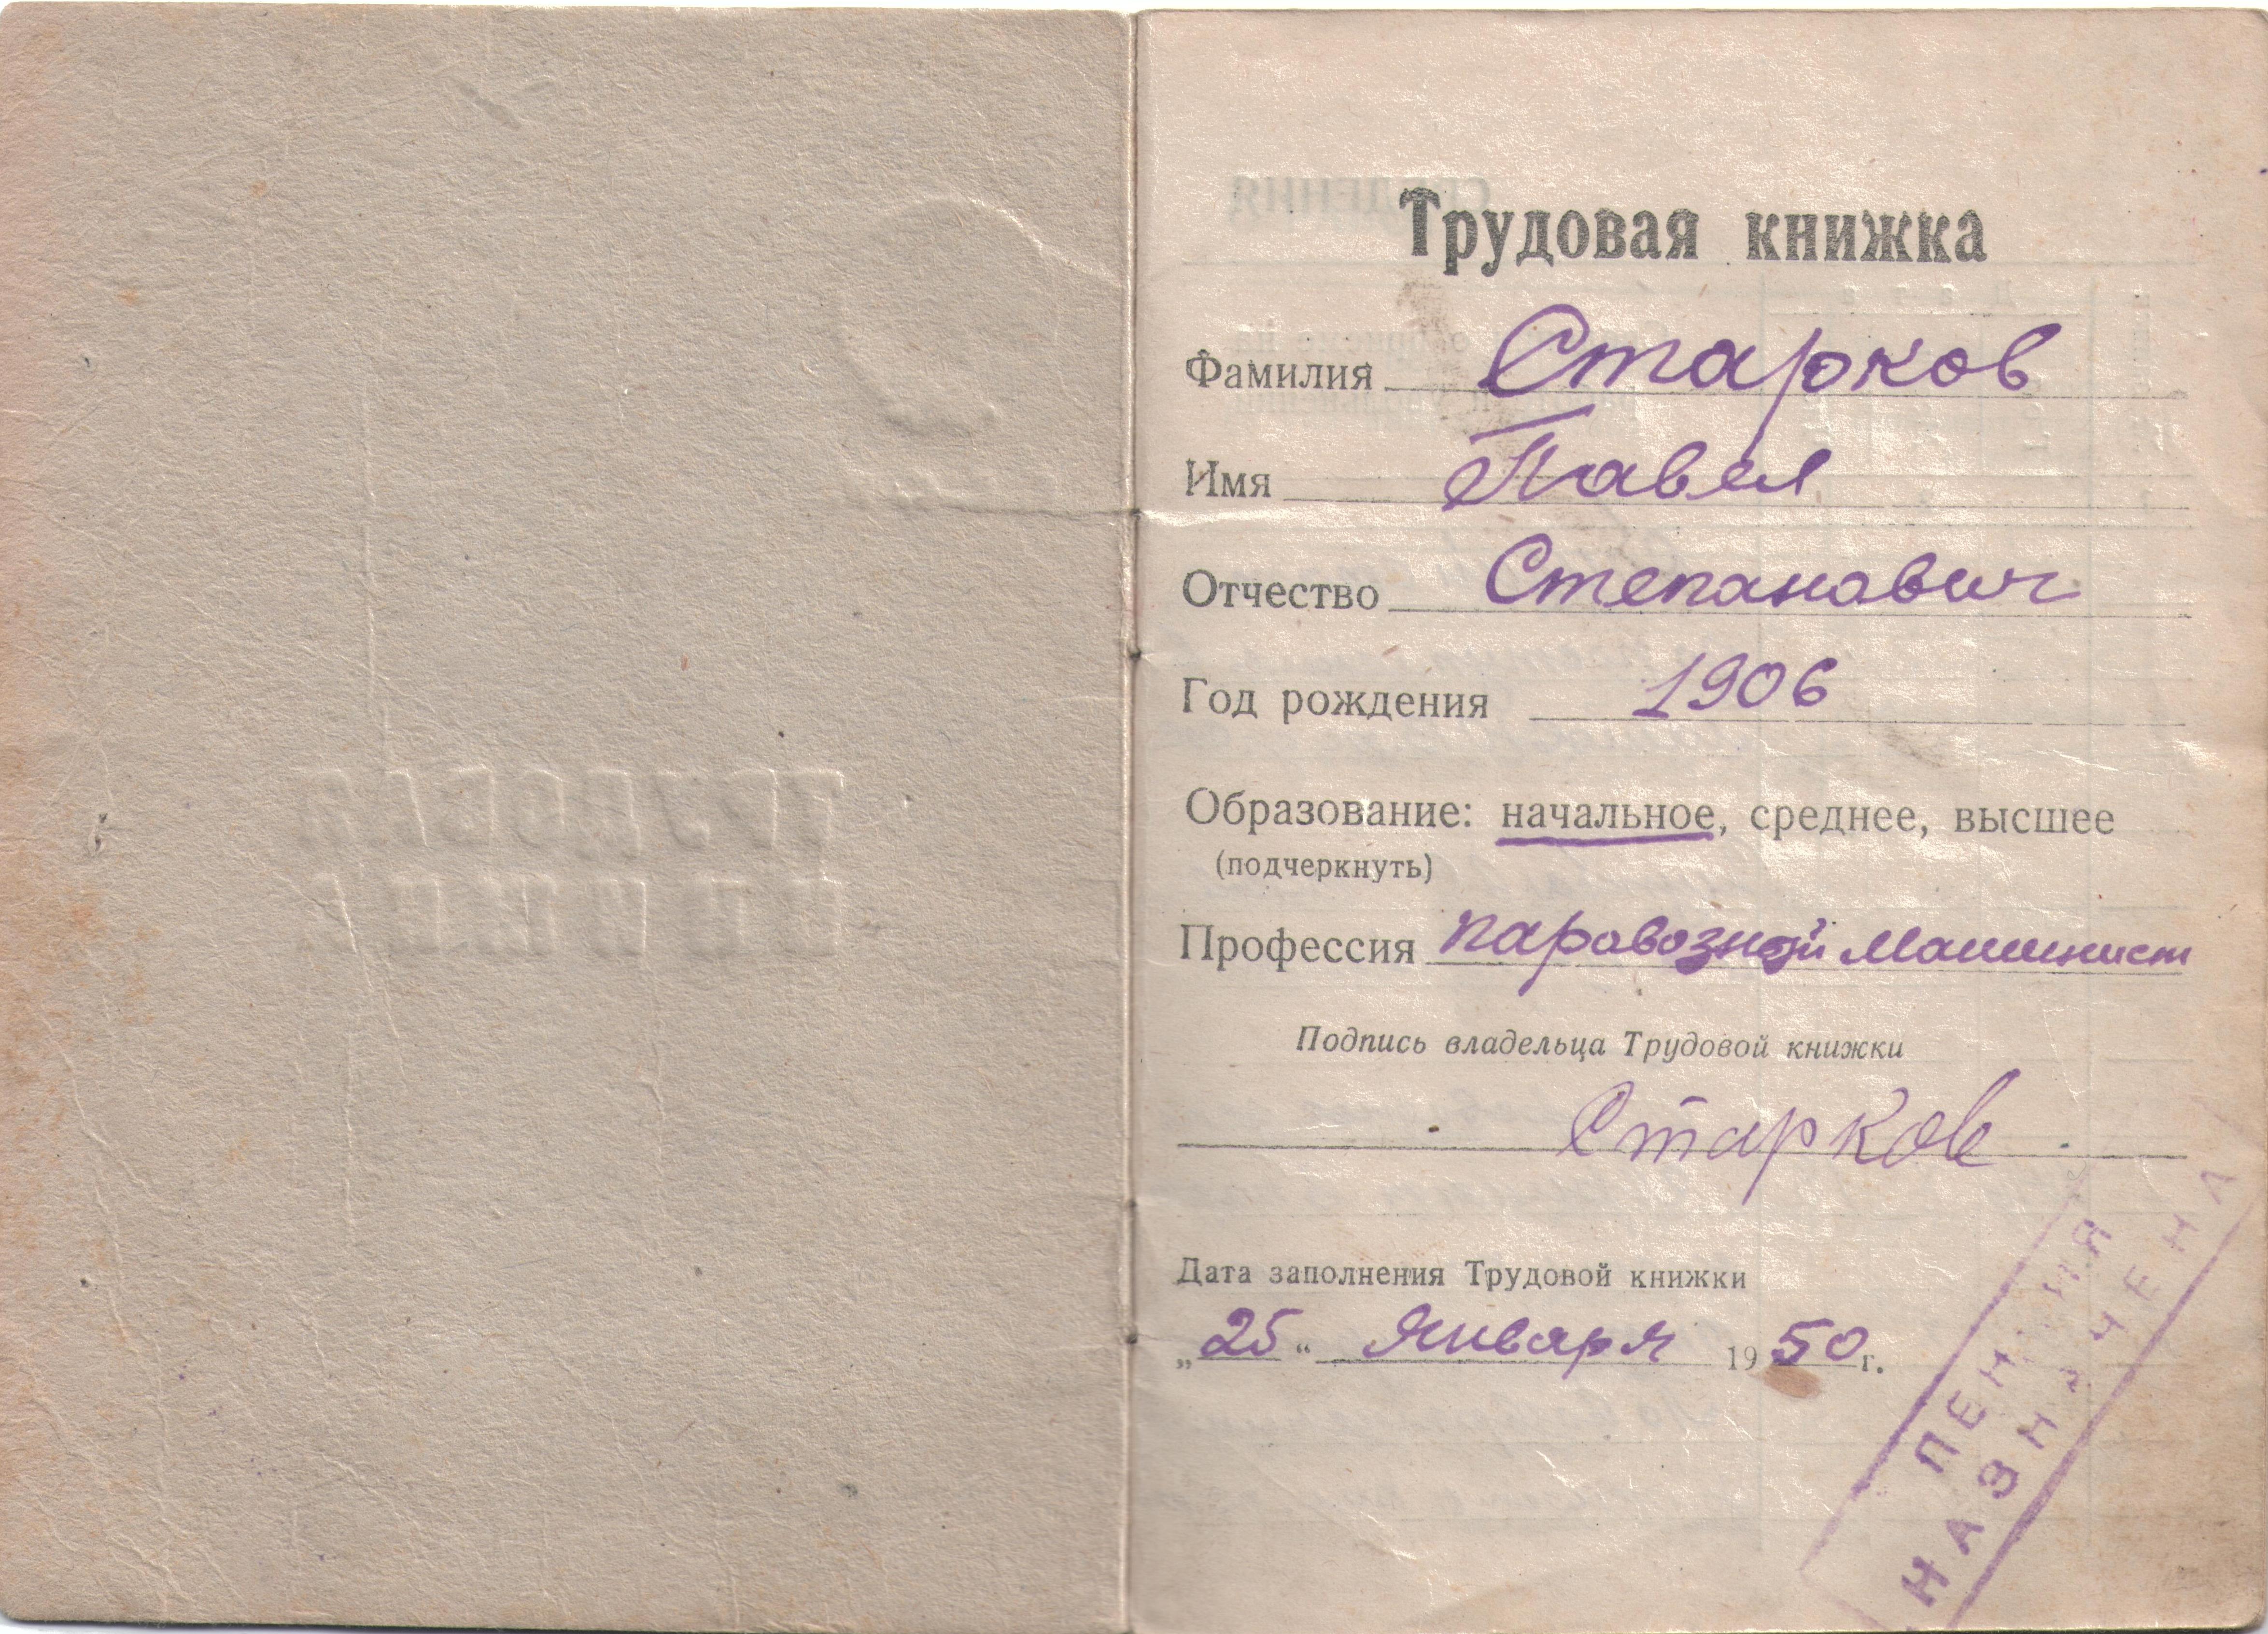 Трудовая книжка
Фамилия Старков
Имя Павел
Отчество Степанович
Год рождения 1906
Образование: начальное, среднее, высшее
(подчеркнуть)
Профессия паровозной машинист
Подпись владельца Трудовой книжки
Старков
Дата заполнения Трудовой книжки
„25“ Января 1950 г.
ПЕНСИЯ
НАЗНАЧЕНА